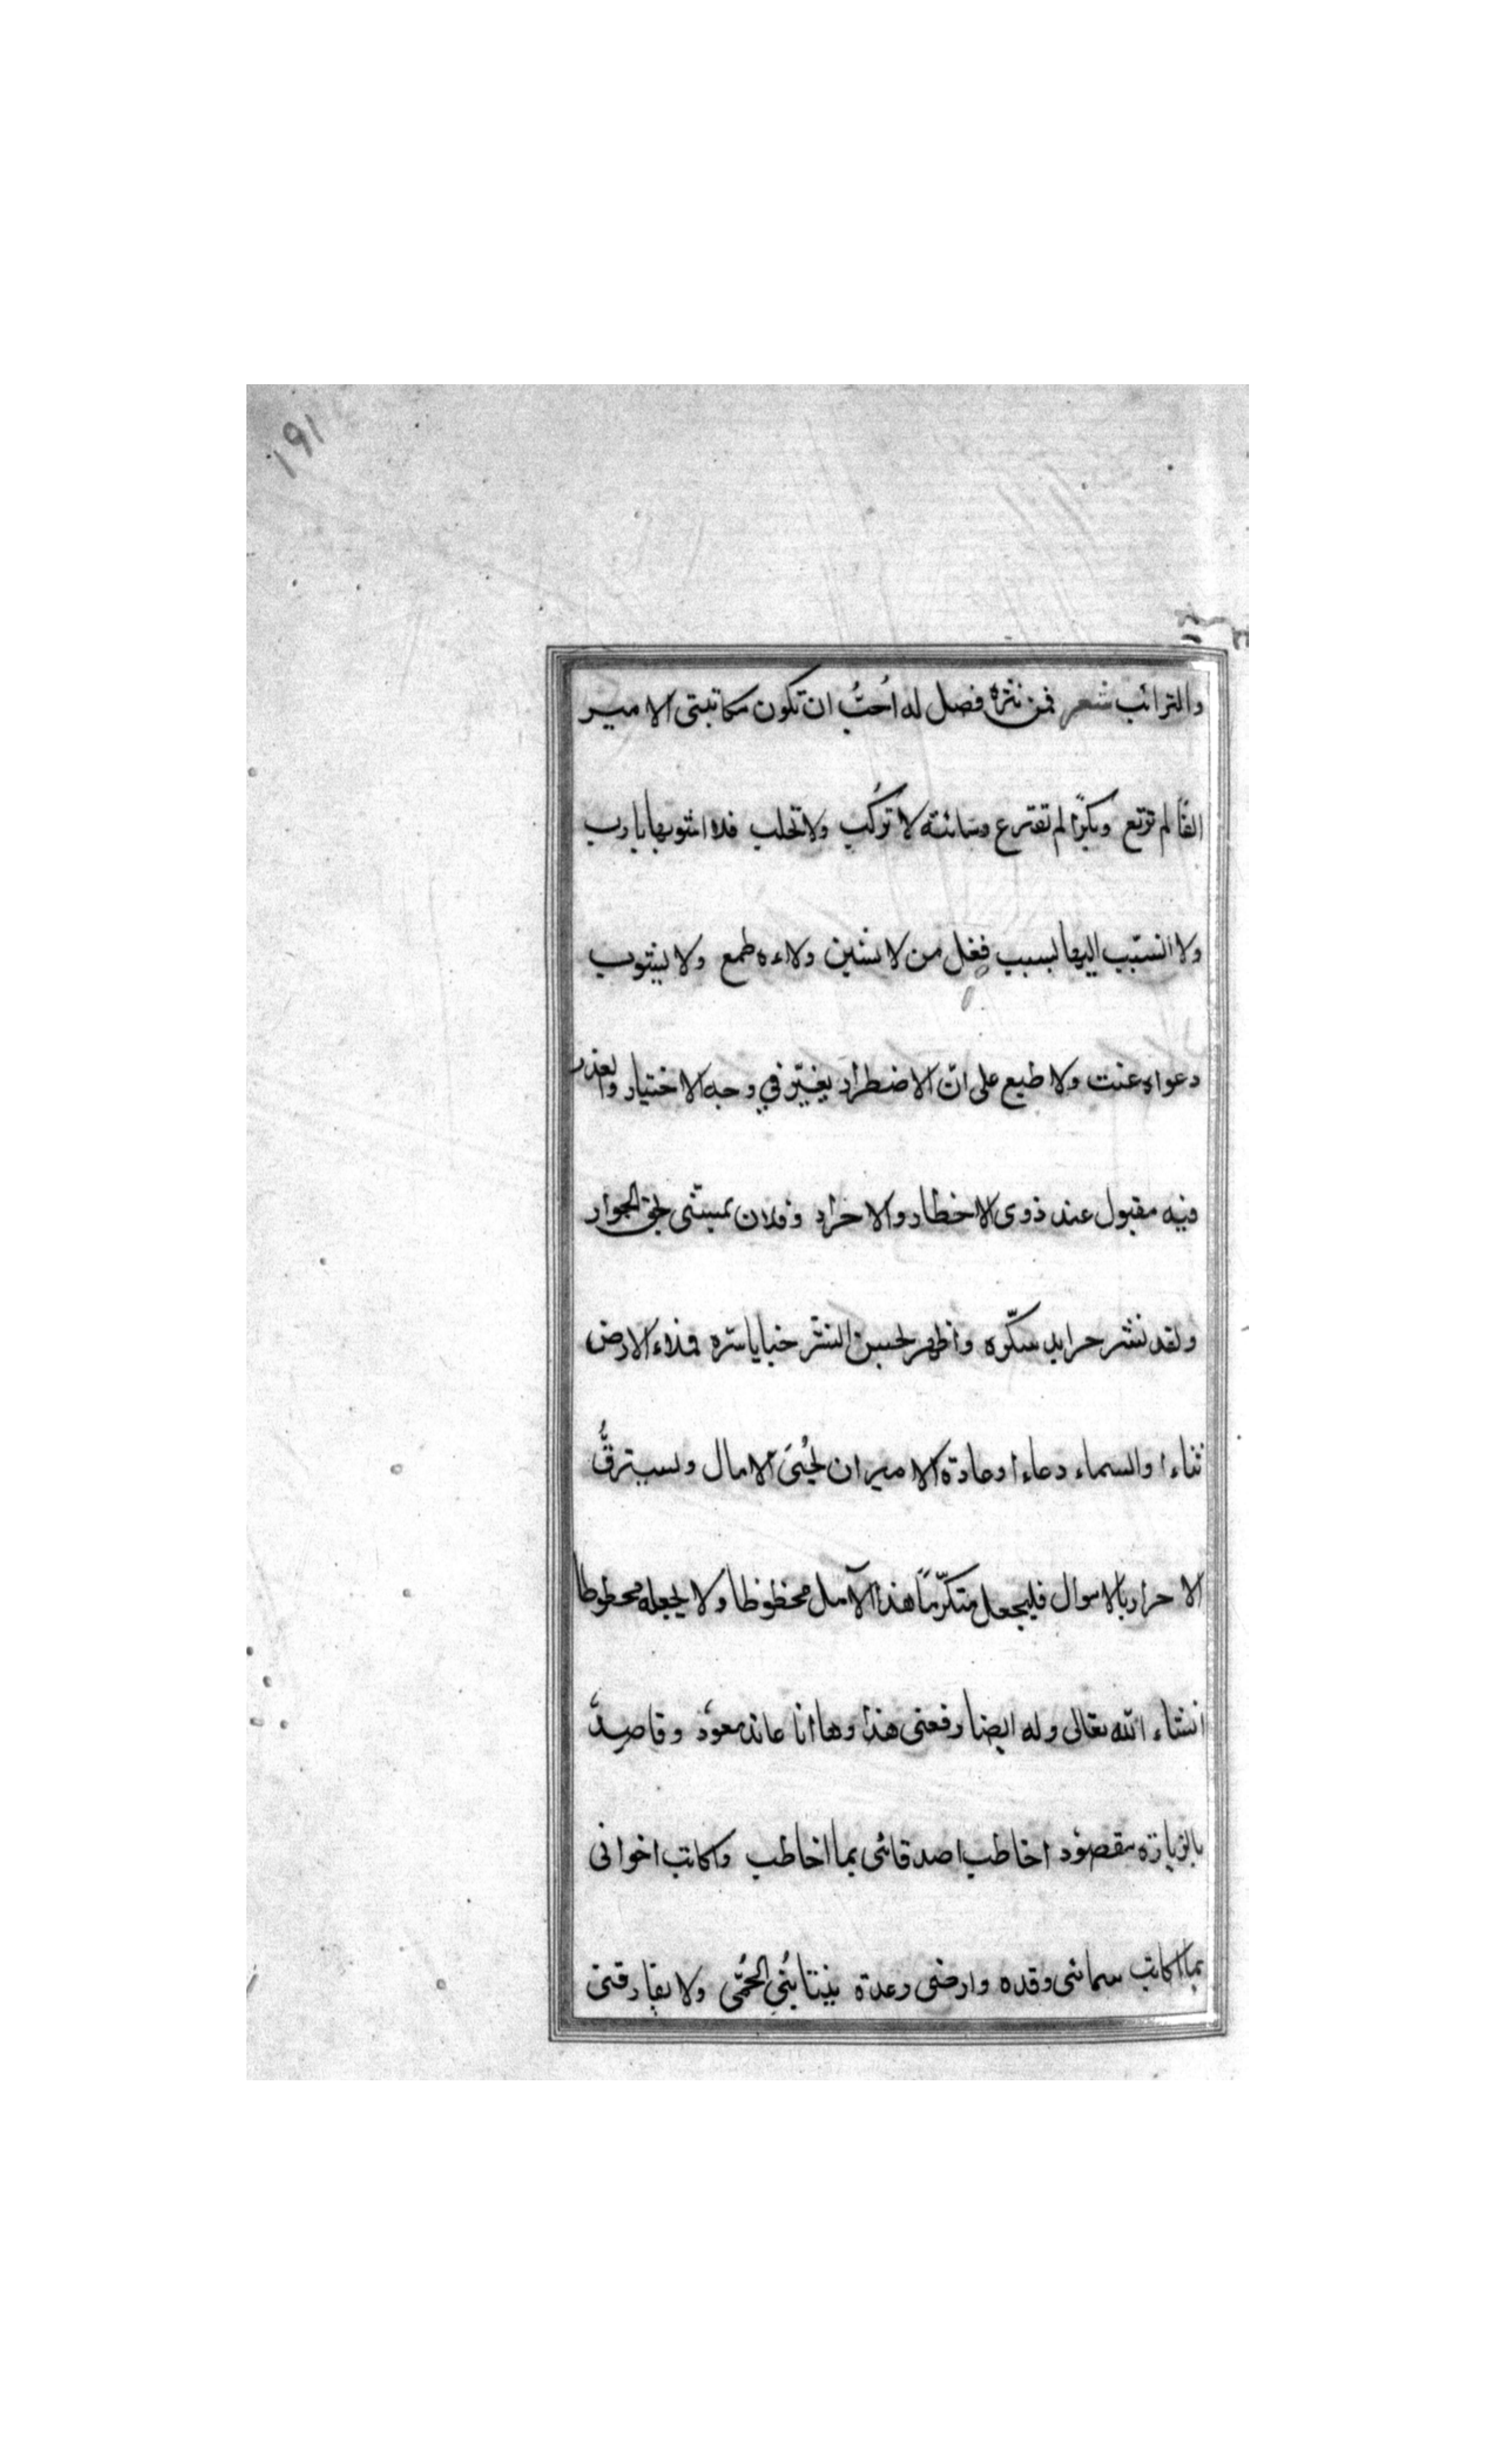 ١٩١
والترائب شعر فمن نثره فصل له اُحبُّ ان تكون مكاتبتى الامير
انفًا لم ترتع وبكرًا لم تفترع وسائبة لا تركب ولا تحلب فلا اشوبها بارب
ولا اتسبّب اليها بسبب فعل من لا يشين ولاءه طمع ولا يشوب
دعواه عنت ولا طبع على انّ الاضطرار يغبّر في وجه الاختيار والعذر
فيه مقبول عند ذوى الاخطار والاحرار وفلان يمشى لحق الجوار
ولقد نشر جرايد شكّره واظهر لحسن النشر خبايا سّره فملاء الارض
ثناءا والسماء دعاءا وعادة الامير ان يُحيىَ الامال ويسترقُّ
الاحرار بالاموال فليجعل متكرّمًا هذا الآمل محظوظا ولا يجعله محطوطا
انشاء الله تعالى وله ايضا رفعتى هذا وها انا عائد معود وقاصد
بالزيارة مقصود اخاطب اصدقائى بما اخاطب واكاتب اخوانى
بما اكاتب سمائى وقده وارضى رعدة ينتابُنِي الحُمّى ولا يفارقنى